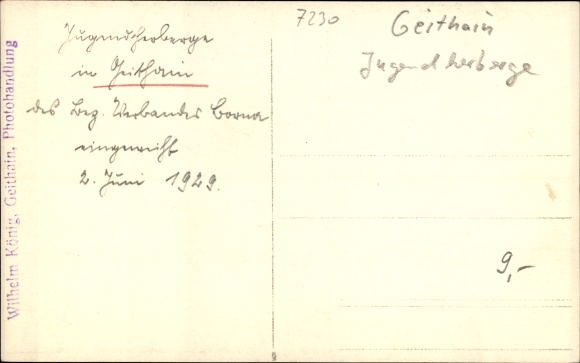 Wilhelm König, Geithain, Photohandlung
Jugendherberge
in Geithain
des Bez. Verbandes Borna
eingeweiht
2. Juni 1929.
7230
Geithain
Jugendherberge
9,-